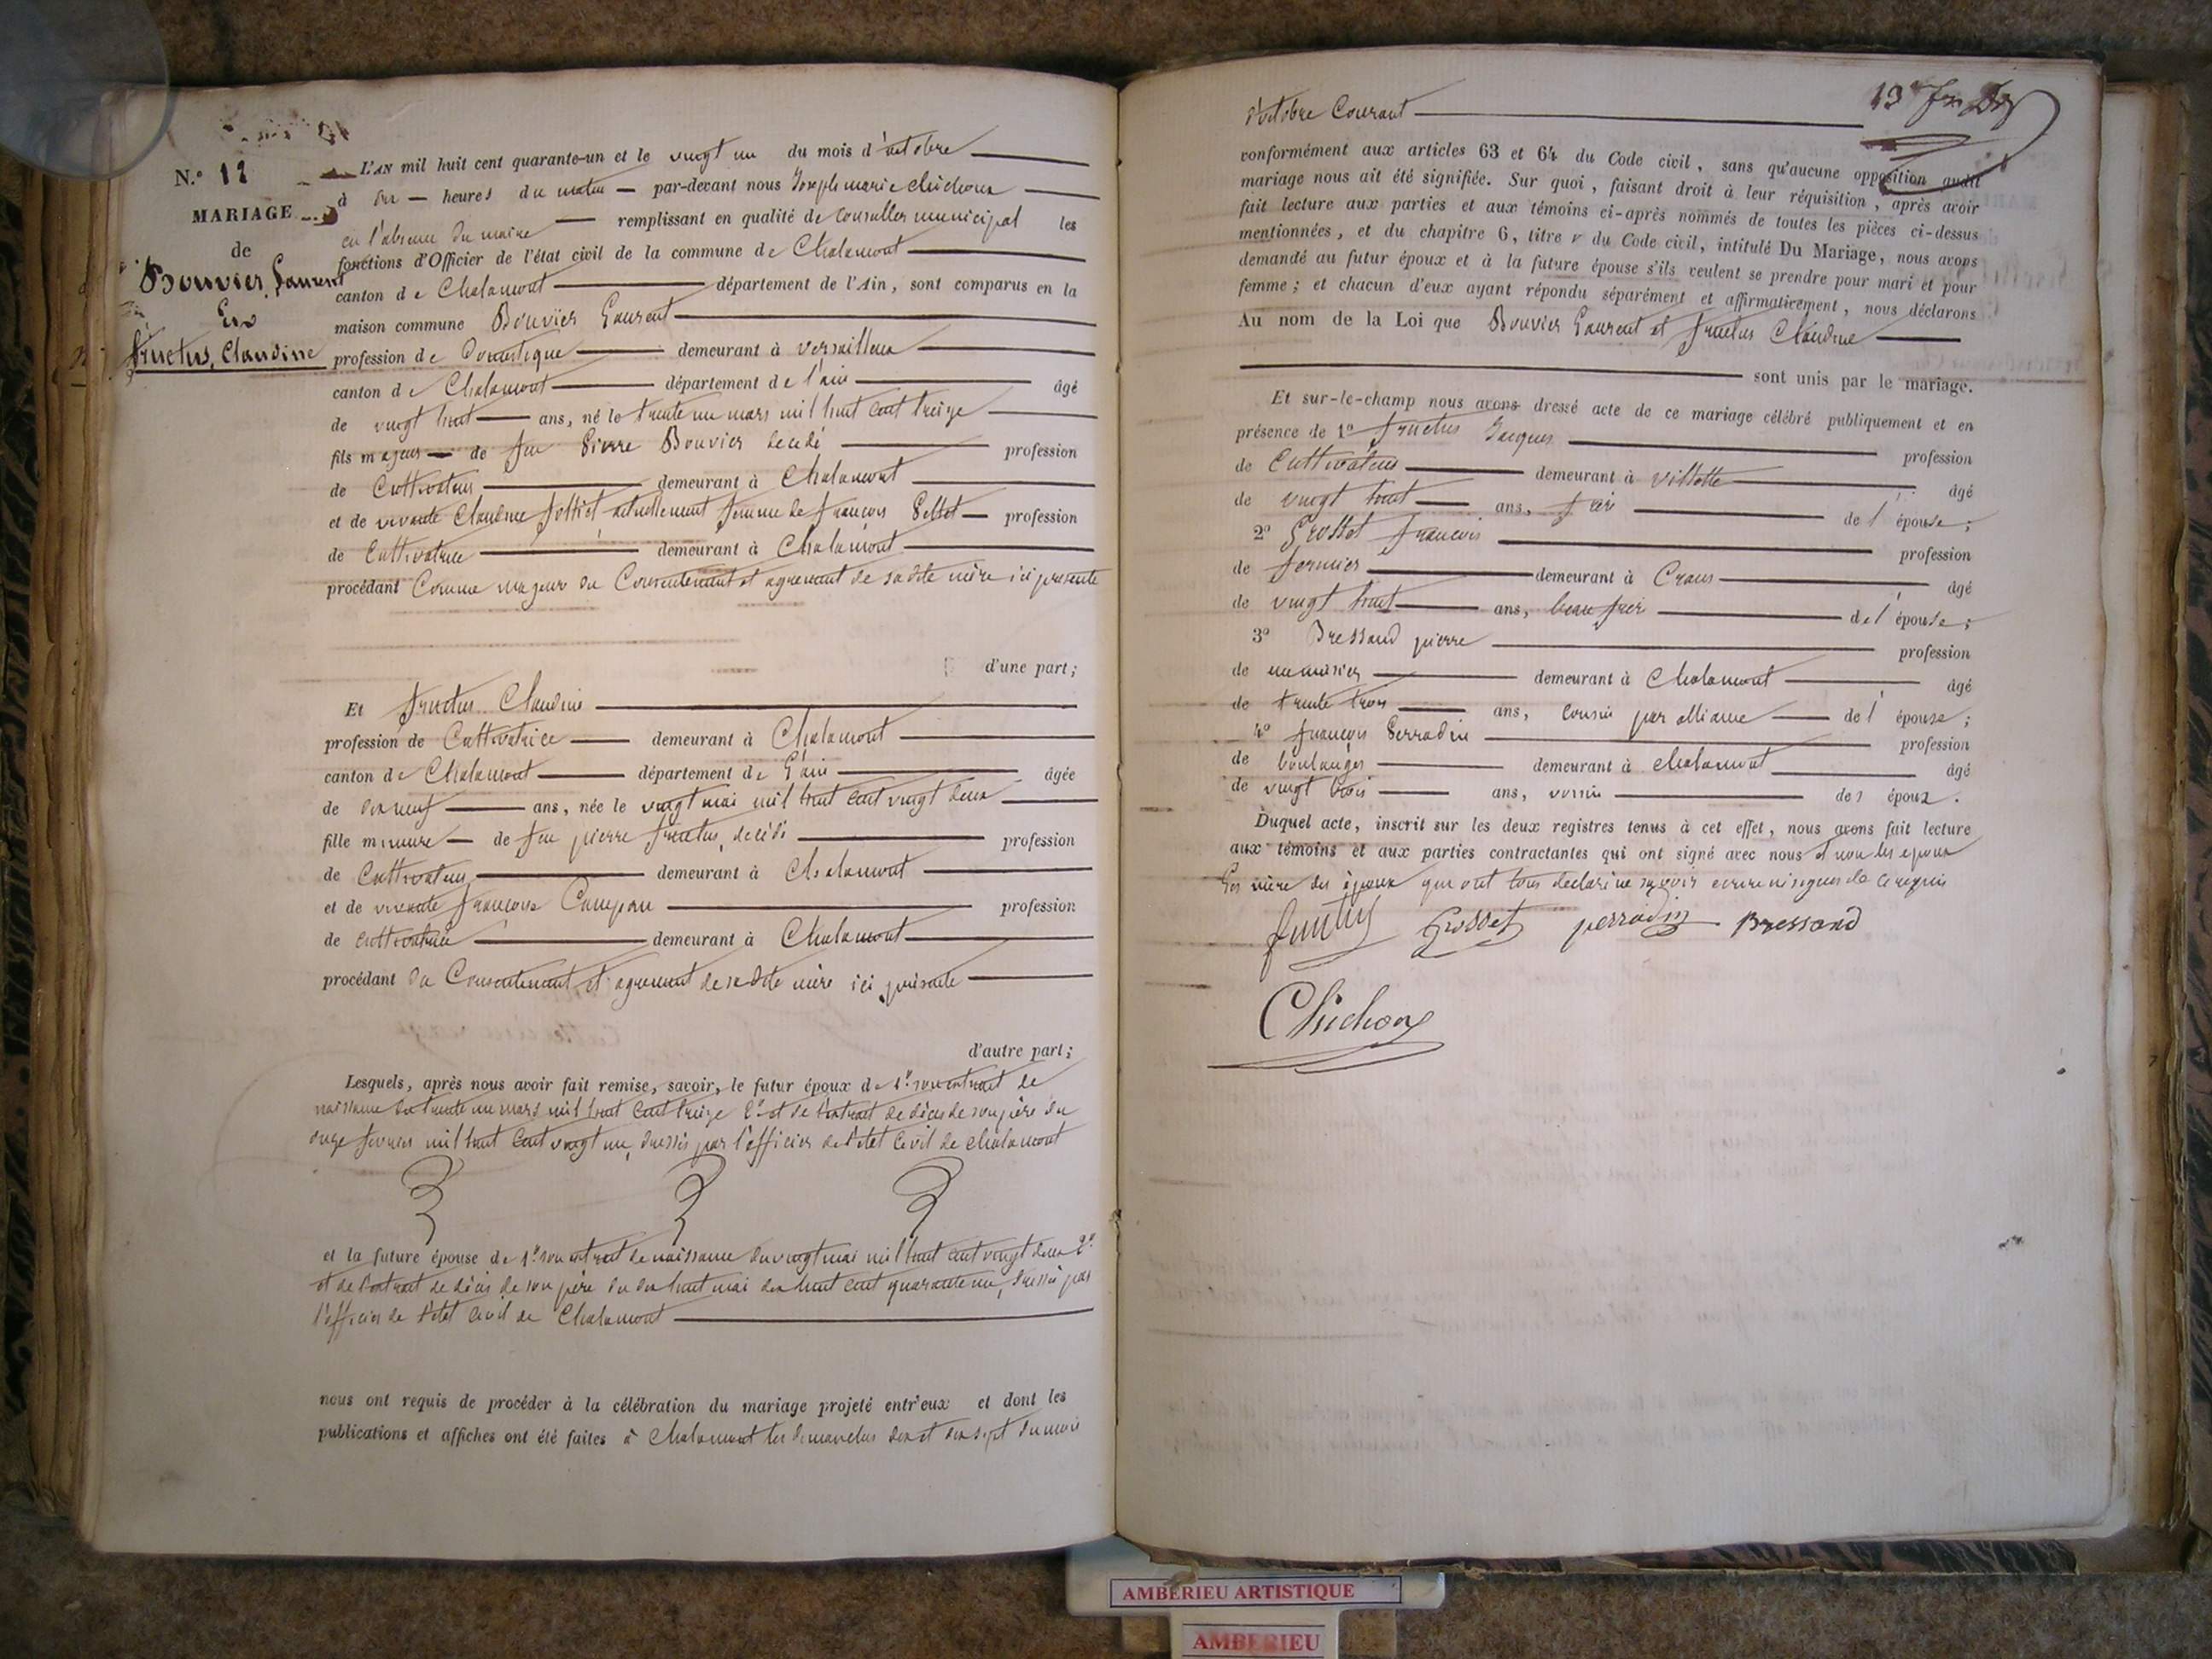 N.° 12
MARIAGE
de
Bouvier, Laurent
Et
fructus, Claudine
L'AN mil huit cent quarante-un et le vingt un du mois d'octobre
à dix heures du matin par-devant nous Joseph marie Chichoux
en l'absence du maire remplissant en qualité de Conseiller municipal les
fonctions d'Officier de l'état civil de la commune de Chalamont
canton de Chalamont département de l'Ain, sont comparus en la
maison commune Bouvier Laurent
profession de Domestique demeurant à Versailleux
canton de Chalamont département de l'ain âgé
de vingt huit ans, né le trente un mars mil huit cent treize
fils majeur de feu Pierre Bouvier décédé profession
de Cultivateur demeurant à Chalamont
et de vivante Claudine actuellement femme de françois profession
de Cultivatrice demeurant à Chalamont
procédant Comme majeur du Consentement et agrement de sadite mère ici presente
d'une part;
Et fructus Claudine
profession de Cultivatrice demeurant à Chalamont
canton de Chalamont département de l'ain âgée
de dix neuf ans, née le vingt mai mil huit cent vingt deux
fille mineure de feu pierre fructus, décédé profession
de Cultivateur demeurant à Chalamont
et de vivante françoise profession
de cultivatrice demeurant à Chalamont
procédant du Consentement et agrement de sadite mère ici présente
d'autre part;
Lesquels, après nous avoir fait remise, savoir, le futur époux de 1° son extrait de
naissance du trente un mars mil huit cent treize 2° et de l'extrait de décès de son père du
onze fevrier mil huit cent vingt un, dressés par l'officier de l'état civil de chalamont
et la future épouse de 1° son extrait de naissance du vingt mai mil huit cent vingt deux 2°
et de l'extrait de décès de son père du dix huit mai dix huit cent quarante un, dressé par
l'officier de l'état civil de Chalamont
nous ont requis de procéder à la célébration du mariage projeté entr'eux et dont les
publications et affiches ont été faites à Chalamont les dimanches dix et dix sept du mois
d'octobre Courant
13e
conformément aux articles 63 et 64 du Code civil, sans qu'aucune opposition audit
mariage nous ait été signifiée. Sur quoi, faisant droit à leur réquisition, après avoir
fait lecture aux parties et aux témoins ci-après nommés de toutes les pièces ci-dessus
mentionnées, et du chapitre 6, titre v du Code civil, intitulé Du Mariage, nous avons
demandé au futur époux et à la future épouse s'ils veulent se prendre pour mari et pour
femme; et chacun d'eux ayant répondu séparément et affirmativement, nous déclarons
Au nom de la Loi que Bouvier Laurent et fructus Claudine
sont unis par le mariage.
Et sur-le-champ nous avons dressé acte de ce mariage célébré publiquement et en
présence de 1° fructus Jacques profession
de Cultivateur demeurant à Villette âgé
de vingt huit ans, frère de l'épouse;
2° Grosset françois profession
de fermier demeurant à Crans âgé
de vingt huit ans, beau frère de l'épouse;
3° Bressand pierre profession
de menuisier demeurant à Chalamont âgé
de trente trois ans, cousin par alliance de l'épouse;
4° françois Perradin profession
de boulanger demeurant à chalamont âgé
de vingt trois ans, voisin des époux.
Duquel acte, inscrit sur les deux registres tenus à cet effet, nous avons fait lecture
aux témoins et aux parties contractantes qui ont signé avec nous et non les epoux
les mère des époux qui ont tous declaré ne savoir ecrire ni signer de ce requis
fructus Grosset perradin Bressand
Chichoux
AMBERIEU ARTISTIQUE
AMBERIEU